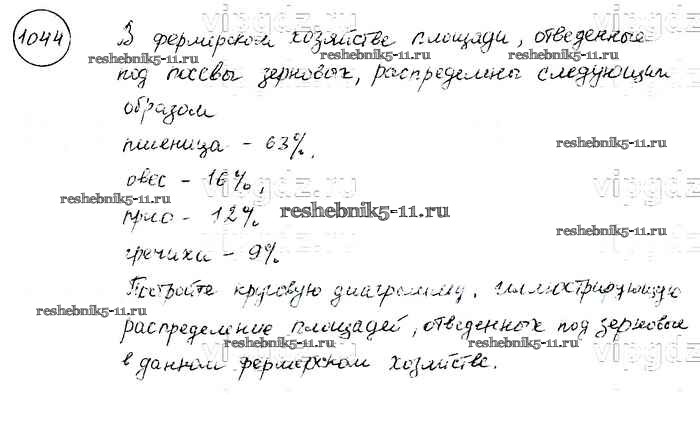 1044
В фермерском хозяйстве площади, отведенные
под посевы зерновых, распределены следующим
образом
пшеница - 63%,
овес - 16%,
просо - 12%
гречиха - 9%
Постройте круговую диаграмму, иллюстрирующую
распределение площадей, отведенных под зерновые
в данном фермерском хозяйстве.
vipgdz.ru
reshebnik5-11.ru
reshebnik5-11.ru
reshebnik5-11.ru
reshebnik5-11.ru
reshebnik5-11.ru
reshebnik5-11.ru
reshebnik5-11.ru
reshebnik5-11.ru
reshebnik5-11.ru